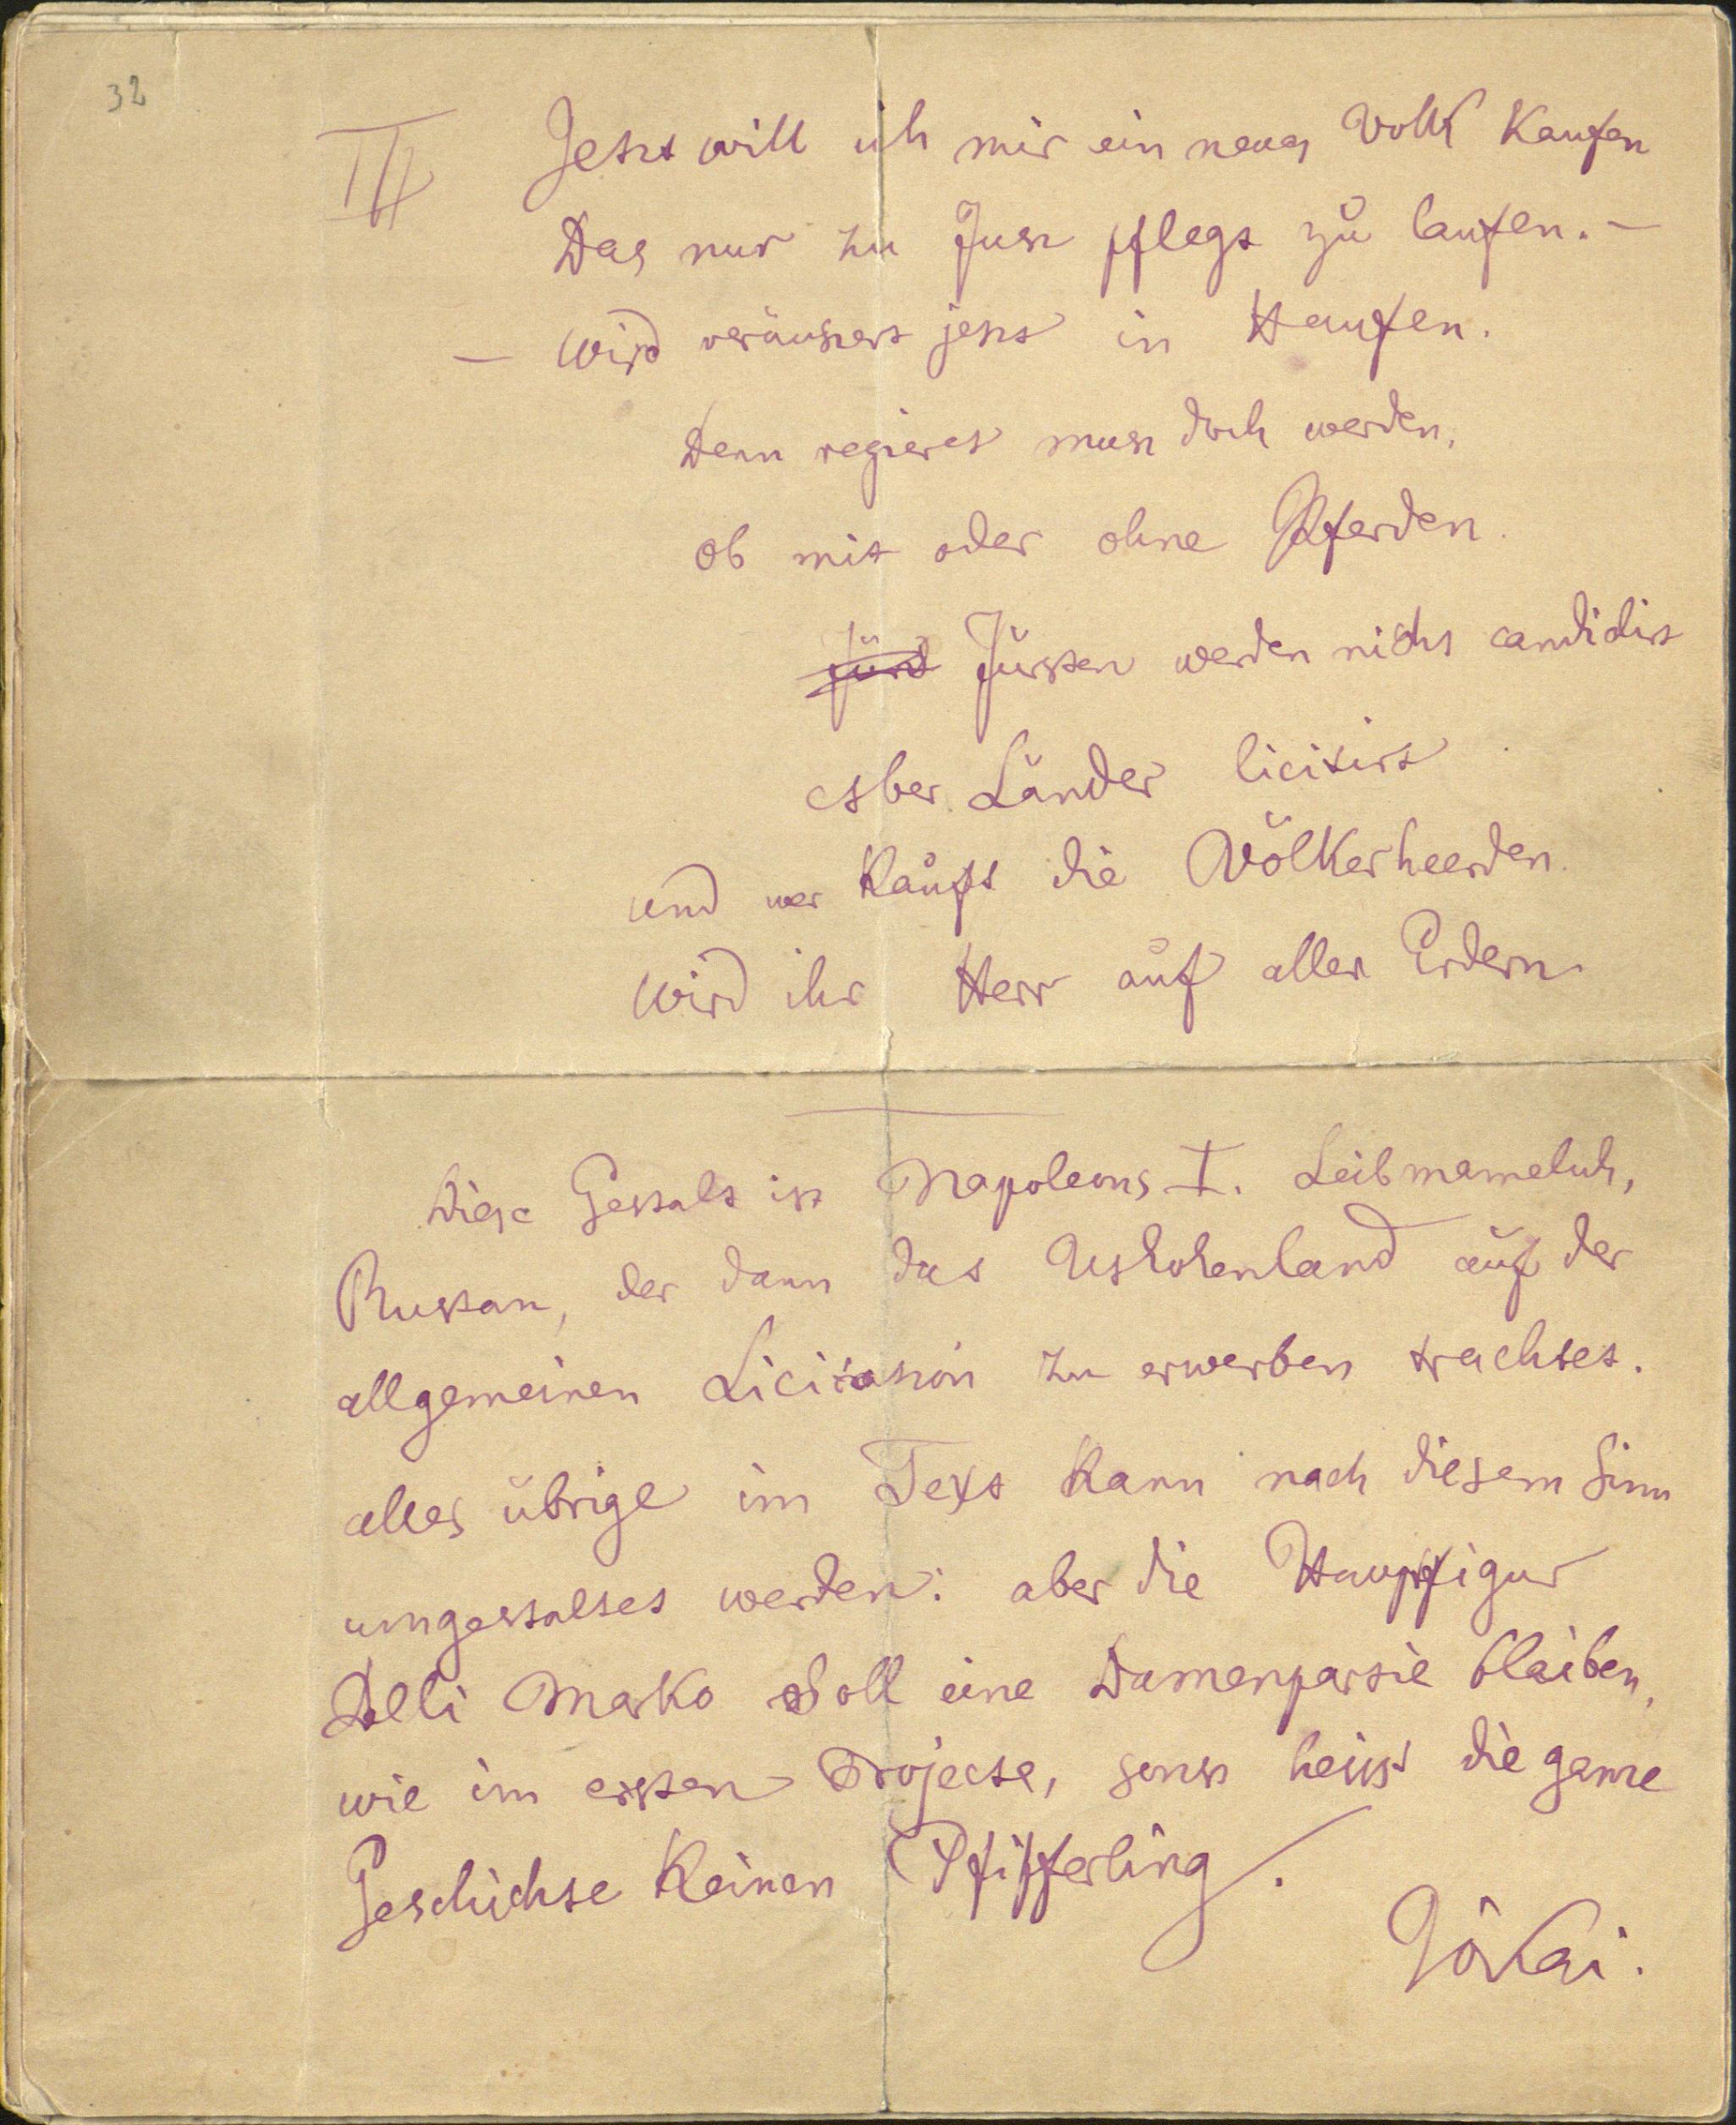 32
III Jetzt will ich mir ein neues Volk Kaufen
Das nur zu Fuss pflegt zu laufen. –
– Wird veräussert jetzt in Haufen.
Denn regieret muss doch werden,
ob mit oder ohne Pferden.
Fürst Fürsten werden nicht candidirt
Aber Länder licitirt
und wer Kauft die Völkerheerden
Wird ihr Herr auf allen Erdern
Diese Gestalt ist Napoleons I. Leibmameluk,
Rustan, der dann das Uskokenland auf der
allgemeinen Licitation zu erwerben trachtet.
alles übrige im Text Kann nach diesem Sinn
umgestaltet werden: aber die Hauptfigur
Deli Marko Soll eine Damenpartie bleiben,
wie im ersten Projecte, sonst heisst die ganze
Geschichte Keinen Pfifferling.
Jókai.